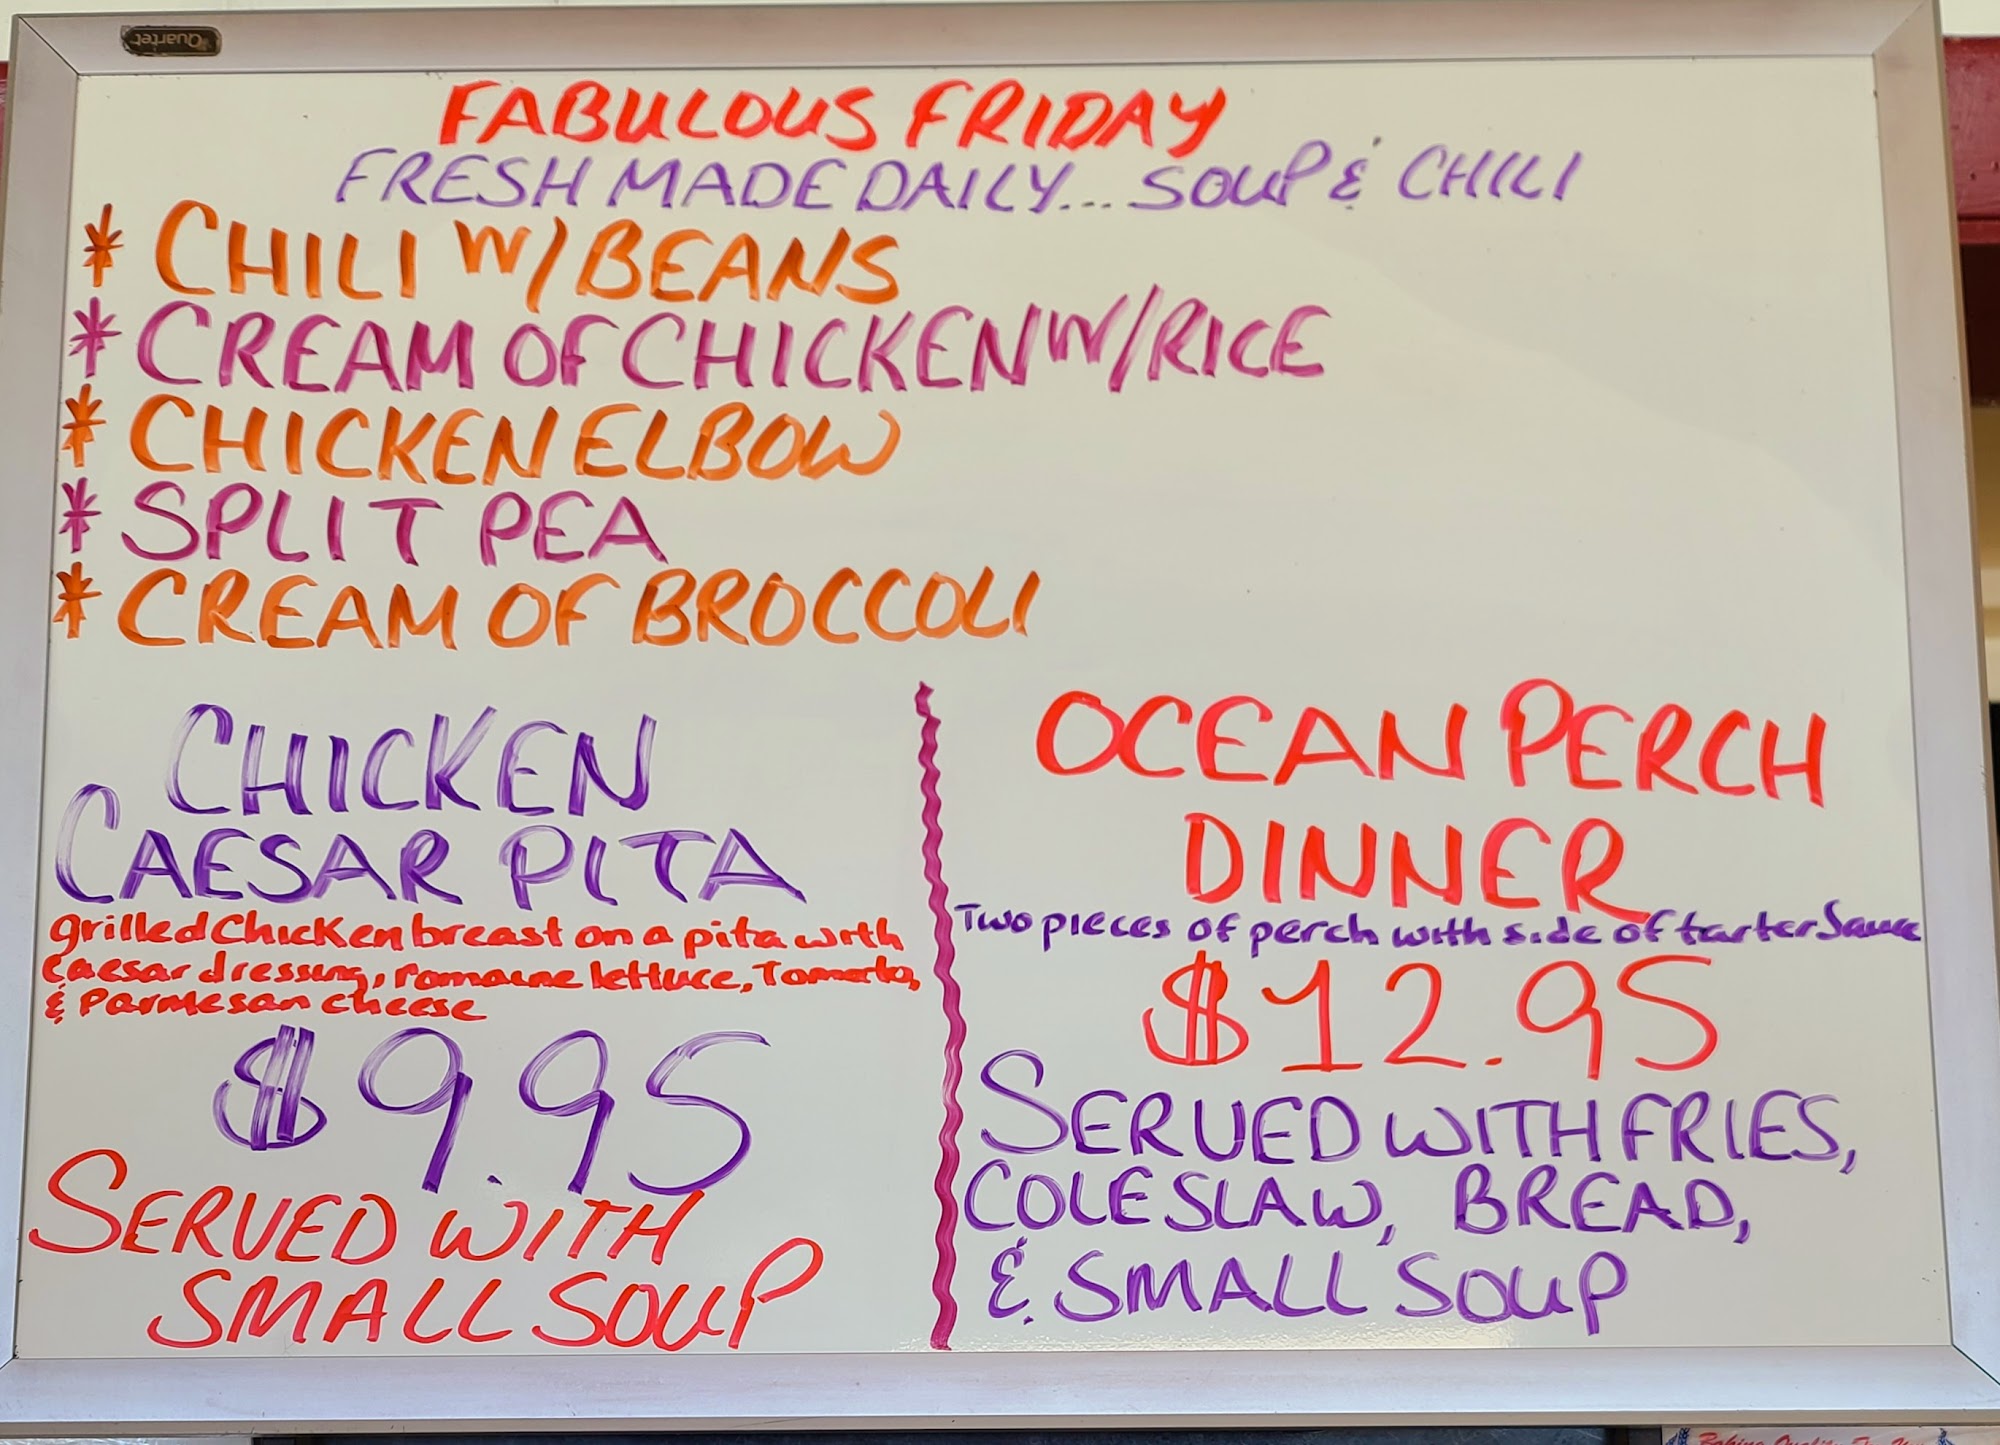 Quartet
FABULOUS FRIDAY
FRESH MADE DAILY... SOUP & CHILI
* CHILI W/ BEANS
* CREAM OF CHICKEN W/ RICE
* CHICKEN ELBOW
* SPLIT PEA
* CREAM OF BROCCOLI
CHICKEN
CAESAR PITA
grilled Chicken breast on a pita with
Caesar dressing, romaine lettuce, Tomato,
& Parmesan cheese
$9.95
SERVED WITH
SMALL SOUP
OCEAN PERCH
DINNER
Two pieces of perch with side of tarter Sauce
$12.95
SERVED WITH FRIES,
COLESLAW, BREAD,
& SMALL SOUP